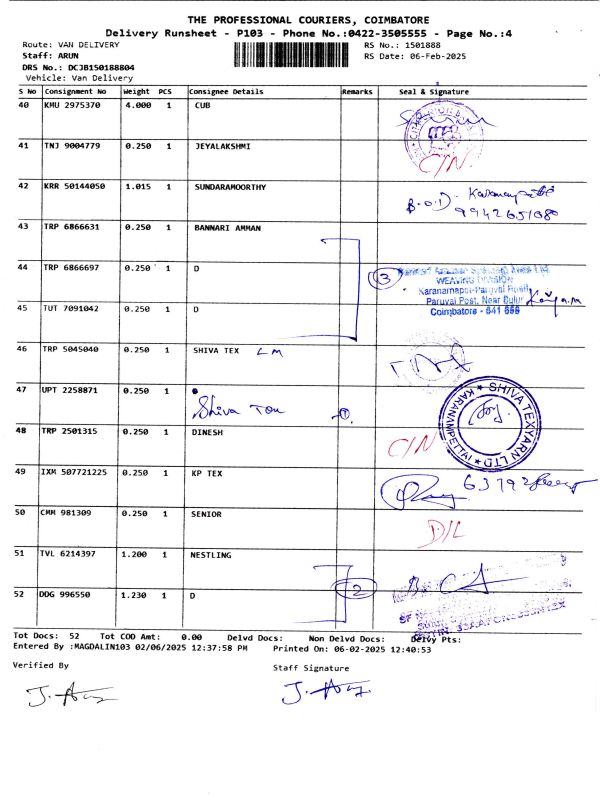 THE PROFESSIONAL COURIERS, COIMBATORE
Delivery Runsheet - P103 - Phone No.:0422-3505555 - Page No.:4
Route: VAN DELIVERY RS No.: 1501888
Staff: ARUN RS Date: 06-Feb-2025
DRS No.: DCJB150188804
Vehicle: Van Delivery
S No Consignment No Weight PCS Consignee Details Remarks Seal & Signature
40 KMU 2975370 4.000 1 CUB
41 TNJ 9004779 0.250 1 JEYALAKSHMI
C/N
42 KRR 50144050 1.015 1 SUNDARAMOORTHY
B.O.D.
43 TRP 6866631 0.250 1 BANNARI AMMAN
44 TRP 6866697 0.250 1 D
3
WEAVING DIVISION
Paruvai Post, Near Sulur
45 TUT 7091042 0.250 1 D
Coimbatore - 641 658
46 TRP 5045040 0.250 1 SHIVA TEX LM
47 UPT 2258871 0.250 1
Shiva Tex
SHIVA TEXYARN LTD
KARANAMPETTAI
48 TRP 2501315 0.250 1 DINESH
C/N
49 IXM 507721225 0.250 1 KP TEX
63792
50 CMM 981309 0.250 1 SENIOR
D/L
51 TVL 6214397 1.200 1 NESTLING
52 DDG 996550 1.230 1 D
2
Tot Docs: 52 Tot COD Amt: 0.00 Delvd Docs: Non Delvd Docs: Delvy Pts:
Entered By :MAGDALIN103 02/06/2025 12:37:58 PM Printed On: 06-02-2025 12:40:53
Verified By Staff Signature